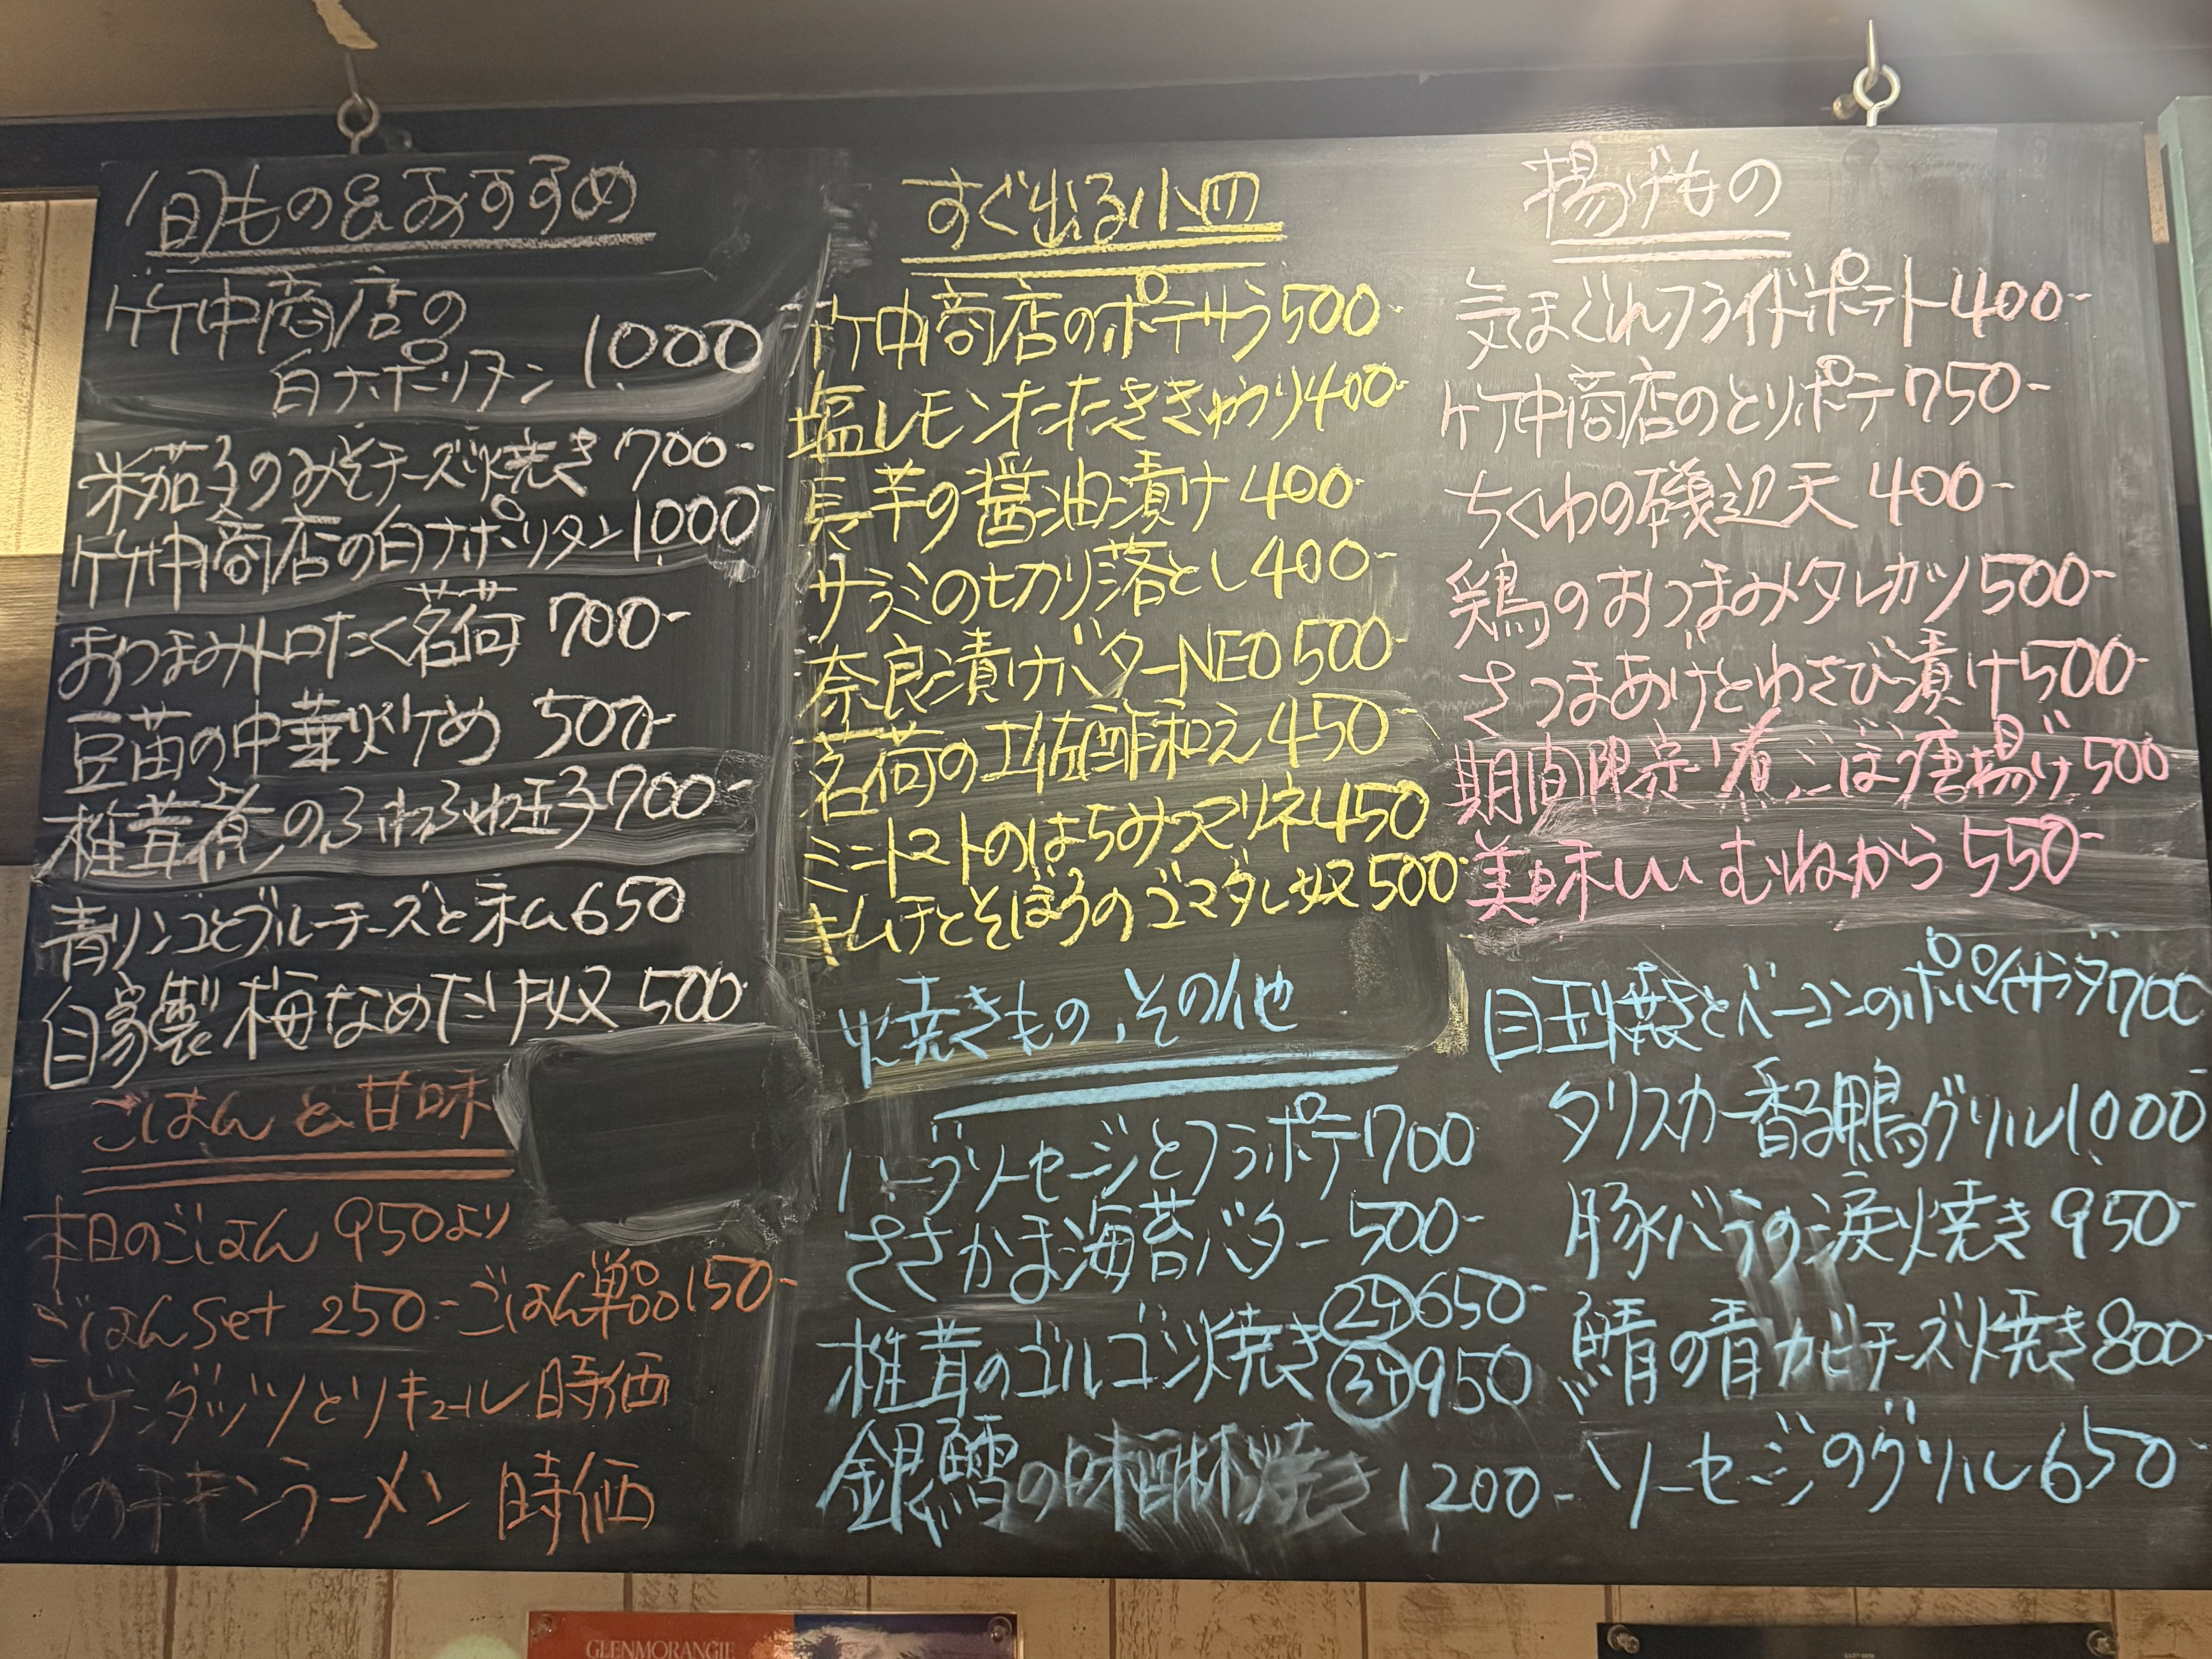 旬もの&おすすめ
竹中商店の
白ナポリタン 1,000
米茄子のみそチーズ焼き 700-
竹中商店の白ナポリタン 1,000
おつまみトロたく茗荷 700-
豆苗の中華炒め 500-
椎茸煮のふわふわ玉子 700-
青リンゴとブルーチーズと 650
自家製梅なめたけ奴 500-
ごはんと甘味
本日のごはん 950より
ごはんset 250- ごはん単品 150-
ハーゲンダッツとリキュール 時価
〆のチキンラーメン 時価
すぐ出る小皿
竹中商店のポテサラ 500-
塩レモンオータたききゅうり 400-
長芋の醤油漬け 400-
サラミの切り落とし 400-
奈良漬けバターNEO 500-
茗荷の土佐酢和え 450-
ミニトマトのはちみつマリネ 450
キムチとそぼろのゴマダレ奴 500-
焼きもの、その他
ハーブソーセージとフラポテ 700
ささかま海苔バター 500-
椎茸のゴルゴン焼き ②ケ 650-
③ケ 950
銀鱈の味醂焼き 1,200-
揚げもの
気まぐれフライドポテト 400-
竹中商店のとりポテ 750-
ちくわの磯辺天 400-
鶏のおつまみタレカツ 500-
さつまあげとわさび漬け 500-
期間限定!煮ごぼう唐揚げ 500-
美味しいむねから 550-
目玉焼きとベーコンのポパイサラダ 700-
タリスカー香る鴨グリル 1,000
豚バラの涙焼き 950-
鯖の青カビチーズ焼き 800
ソーセージのグリル 650
GLENMORANGIE